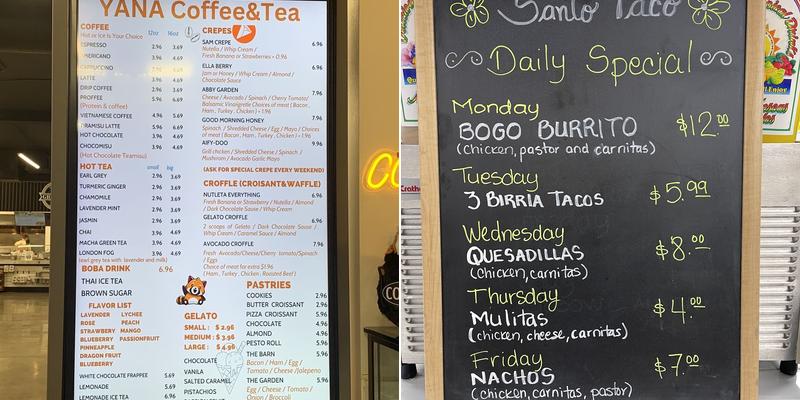 YANA Coffee&Tea
COFFEE 12oz 16oz
Hot or Ice Is Your Choice
ESPRESSO 2.96 3.69
AMERICANO 2.96 3.69
CAPPUCCINO 2.96 3.69
LATTE 2.96 3.69
DRIP COFFEE 2.96 3.69
PROFFEE 5.96 6.69
(Protein & coffee)
VIETNAMESE COFFEE 4.96 5.69
TIRAMISU LATTE 5.96 6.69
HOT CHOCOLATE 2.96 3.69
CHOCOMISU 2.96 3.69
(Hot Chocolate Tiramisu)
HOT TEA small big
EARL GREY 2.96 3.69
TURMERIC GINGER 2.96 3.69
CHAMOMILE 2.96 3.69
LAVENDER MINT 2.96 3.69
JASMIN 2.96 3.69
CHAI 2.96 3.69
MACHA GREEN TEA 3.96 4.69
LONDON FOG 3.96 4.69
(earl grey tea with lavender and milk)
BOBA DRINK 6.96
THAI ICE TEA
BROWN SUGAR
FLAVOR LIST
LAVENDER LYCHEE
ROSE PEACH
STRAWBERY MANGO
BLUEBERRY PASSIONFRUIT
PINNEAPPLE
DRAGON FRUIT
BLUEBERRY
WHITE CHOCOLATE FRAPPE 5.69
LEMONADE 5.69
LEMONADE ICE TEA 6.96
CREPES
SAM CREPE 6.96
Nutella / Whip Cream /
Fresh Banana or Strawberries + 0.96
ELLA BERRY 6.96
Jam or Honey / Whip Cream / Almond /
Chocolate Sauce
ABBY GARDEN 7.96
Cheese / Avocado / Spinach / Cherry Tomato/
Balsamic Vinaingrette Choices of meat ( Bacon ,
Ham , Turkey , Chicken ) + 1.96
GOOD MORNING HONEY 7.96
Spinach / Shredded Cheese / Egg / Mayo / Choices
of meat ( Bacon , Ham , Turkey , Chicken ) + 1.96
AIFY-DOO 9.96
Grill chicken / Shredded Cheese / Spinach /
Mushroom / Avocado Garlic Mayo
(ASK FOR SPECIAL CREPE EVERY WEEKEND)
CROFFLE (CROISANT&WAFFLE)
NUTLETA EVERYTHING 6.96
Fresh Banana or Strawberry / Nutella / Almond
/ Dark Chocolate Sause / Whip Cream
GELATO CROFFLE 6.96
2 scoops of Gelato / Dark Chocolate Sause /
Whip Cream / Caramel Sause / Almond
AVOCADO CROFFLE 7.96
Fresh Avocado/Cheese/Cherry tomato/Spinach
/ Egg
Choice of meat for extra $1.96
(Ham , Turkey , Chicken , Roasted Beef)
GELATO
SMALL : $ 2.96
MEDIUM : $ 3.96
LARGE : $ 4.96
CHOCOLATE
VANILA
SALTED CARAMEL
PISTACHIOS
PASTRIES
COOKIES 2.96
BUTTER CROISSANT 2.96
PIZZA CROISSANT 5.96
CHOCOLATE 4.96
ALMOND 4.96
PESTO ROLL 5.96
THE BARN 5.96
Bacon / Ham / Egg /
Tomato / Cheese /Jalepeno
THE GARDEN 5.96
Egg / Cheese / Tomato /
Onion / Broccoli
CO
Santo Taco
Daily Special
Monday
BOGO BURRITO $12.00
(chicken, pastor and carnitas)
Tuesday
3 BIRRIA TACOS $5.99
Wednesday
QUESADILLAS $8.00
(chicken, carnitas)
Thursday
Mulitas $4.00
(chicken, cheese, carnitas)
Friday
NACHOS $7.00
(chicken, carnitas, pastor)